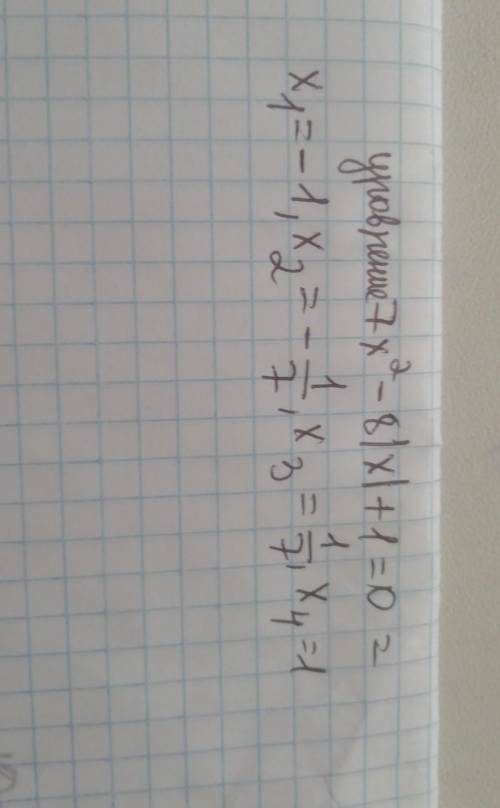 уравнение 7x² - 8|x| + 1 = 0 =
x₁ = -1, x₂ = -1/7, x₃ = 1/7, x₄ = 1